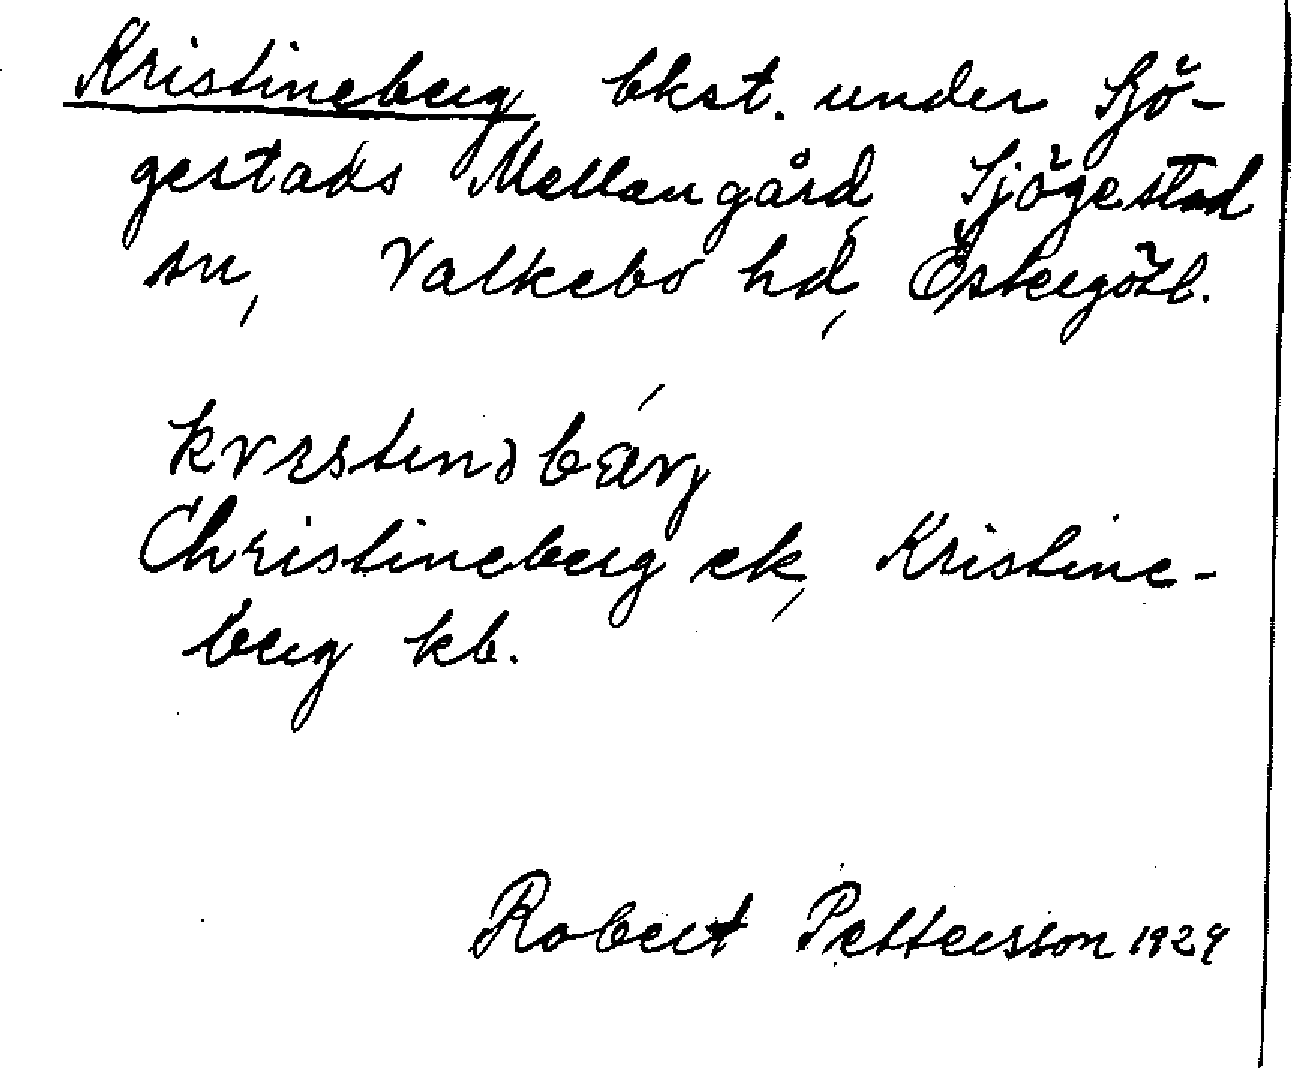 Kristineberg bkst. under Sjö-
gestads Mellangård, Sjögestad
sn, Valkebo hd, Östergötl.
krɪstinəbærj
Christineberg ek, Kristine-
berg kb.
Robert Pettersson 1929